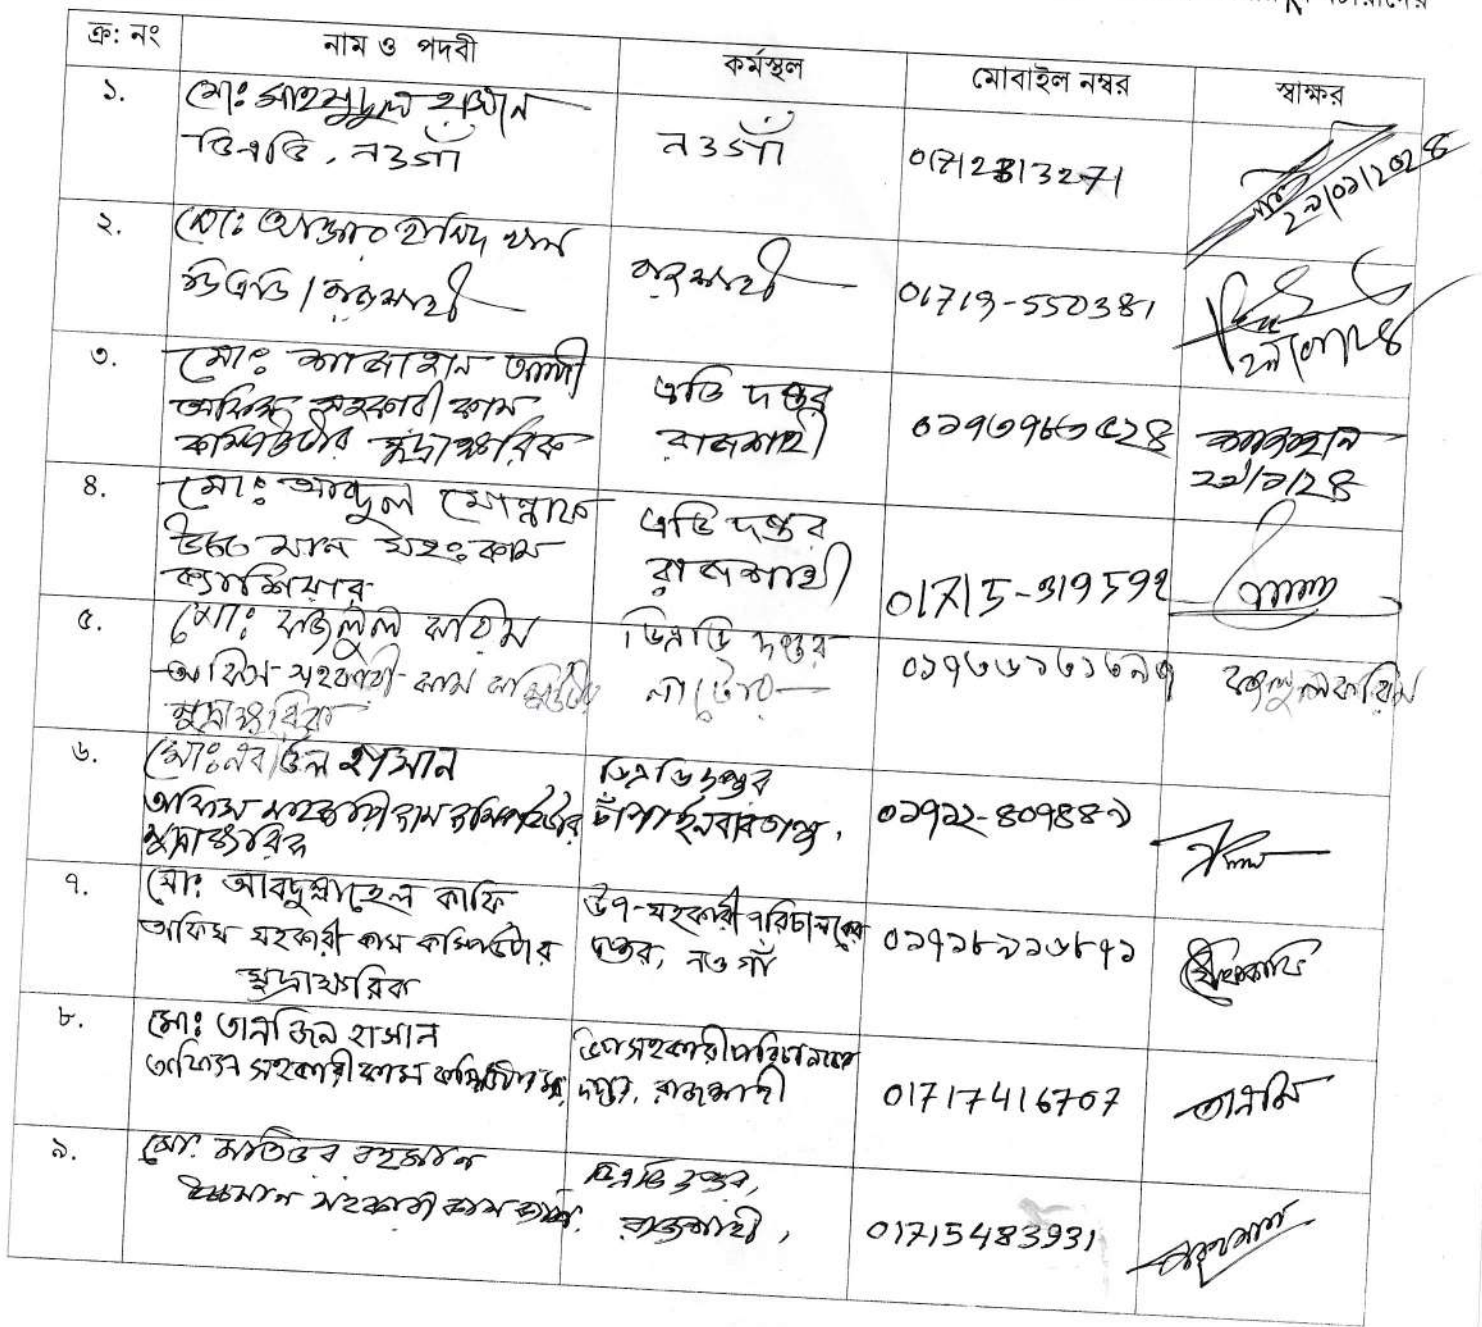 ক্র: নং নাম ও পদবী কর্মস্থল মোবাইল নম্বর স্বাক্ষর
১. মো: মাহমুদুল হাসান
ডিএডি, নওগাঁ নওগাঁ 01712813271
২৯/০১/২০২৪
২. মো: হামিদ খান
ডিএডি/রাজশাহী রাজশাহী 01719-550381
৩. মো: শাজাহান আলী
অফিস সহকারী কাম
কম্পিউটার মুদ্রাক্ষরিক
এডি দপ্তর
রাজশাহী
০১৭৩৭৮৩৫২৪ শাজাহান
২৯/১/২৪
৪. মো: আব্দুল মোন্নাফ
উচ্চ মান সহ: কাম
ক্যাশিয়ার
এডি দপ্তর
রাজশাহী
01715-319592
৫. মো: ফজলুল করিম
অফিস সহকারী কাম কম্পিউটার
মুদ্রাক্ষরিক
ডিএডি দপ্তর
নাটোর
০১৭৩৬১৬১৬৯৭ ফজলুল করিম
৬. মো: হাসান
অফিস সহকারী কাম কম্পিউটার
মুদ্রাক্ষরিক
ডিএডি দপ্তর
চাঁপাইনবাবগঞ্জ,
০১৭১২-৪০৭৪৪১
৭. মো: আবদুল্লাহেল কাফি
অফিস সহকারী কাম কম্পিউটার
মুদ্রাক্ষরিক
উপ-সহকারী পরিচালকের
দপ্তর, নওগাঁ
০১৭১৮৯১৩৮৭১
৮. মো: তানজিল হাসান
অফিস সহকারী কাম
উপসহকারী পরিচালকের
দপ্তর, রাজশাহী
01717416707
৯. মো: মতিউর রহমান
উচ্চমান সহকারী কাম
ডিএডি দপ্তর,
রাজশাহী,
01715483931